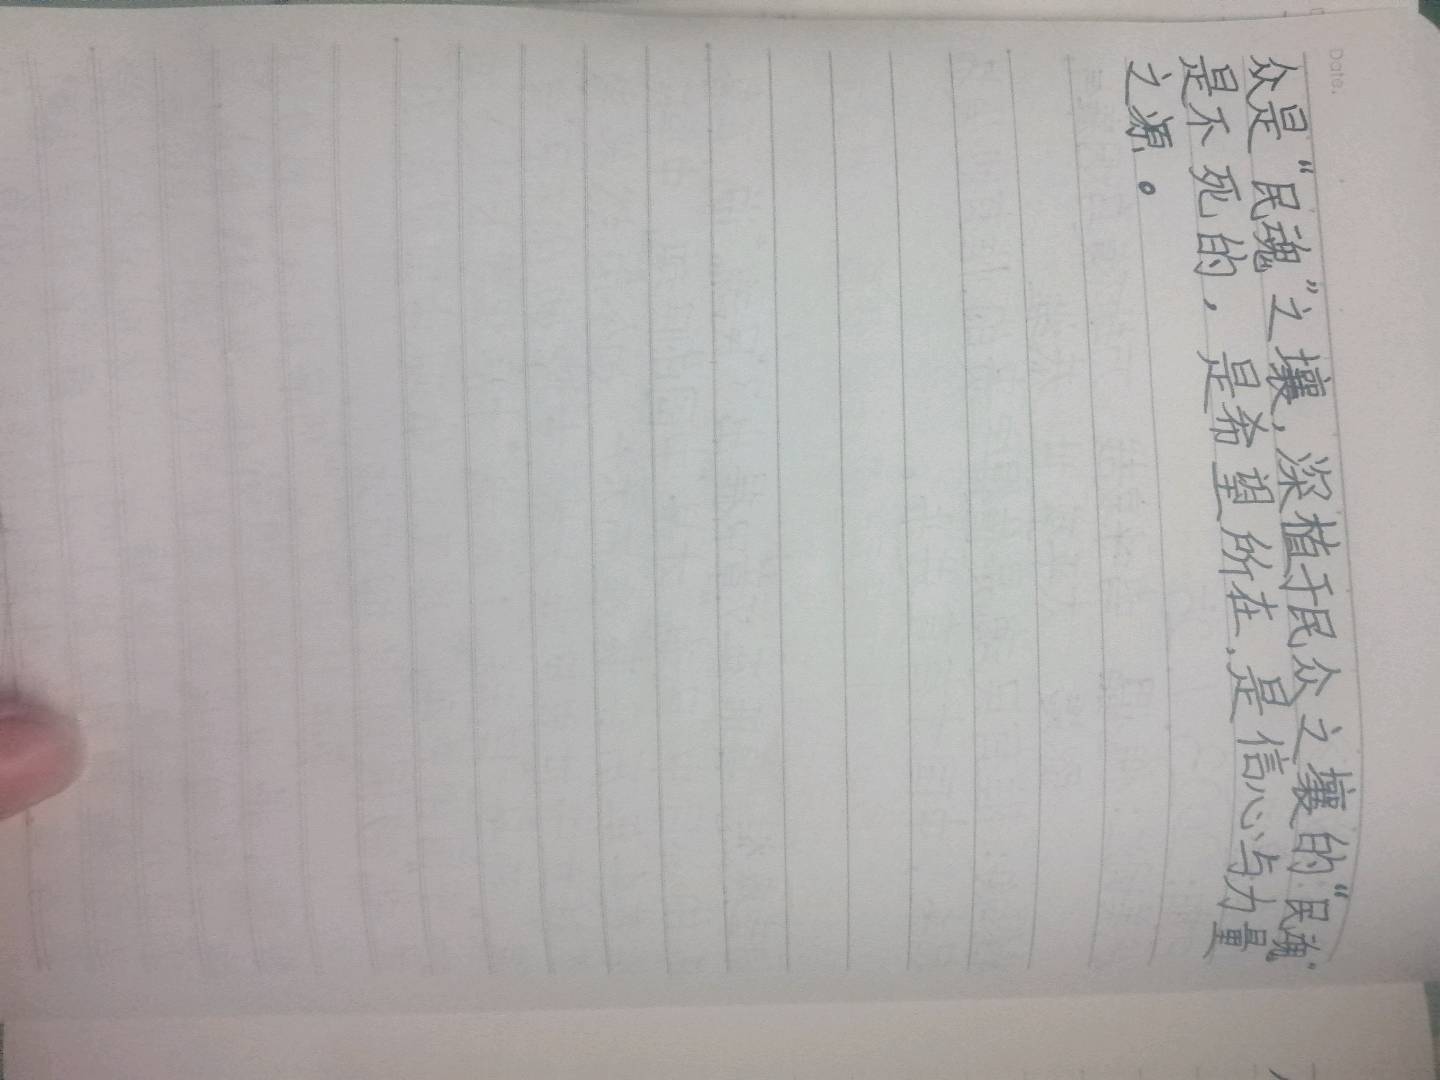 Date:
众是“民魂”之壤，深植于民众之壤的“民魂”
是不死的，是希望所在，是信心与力量
之源。